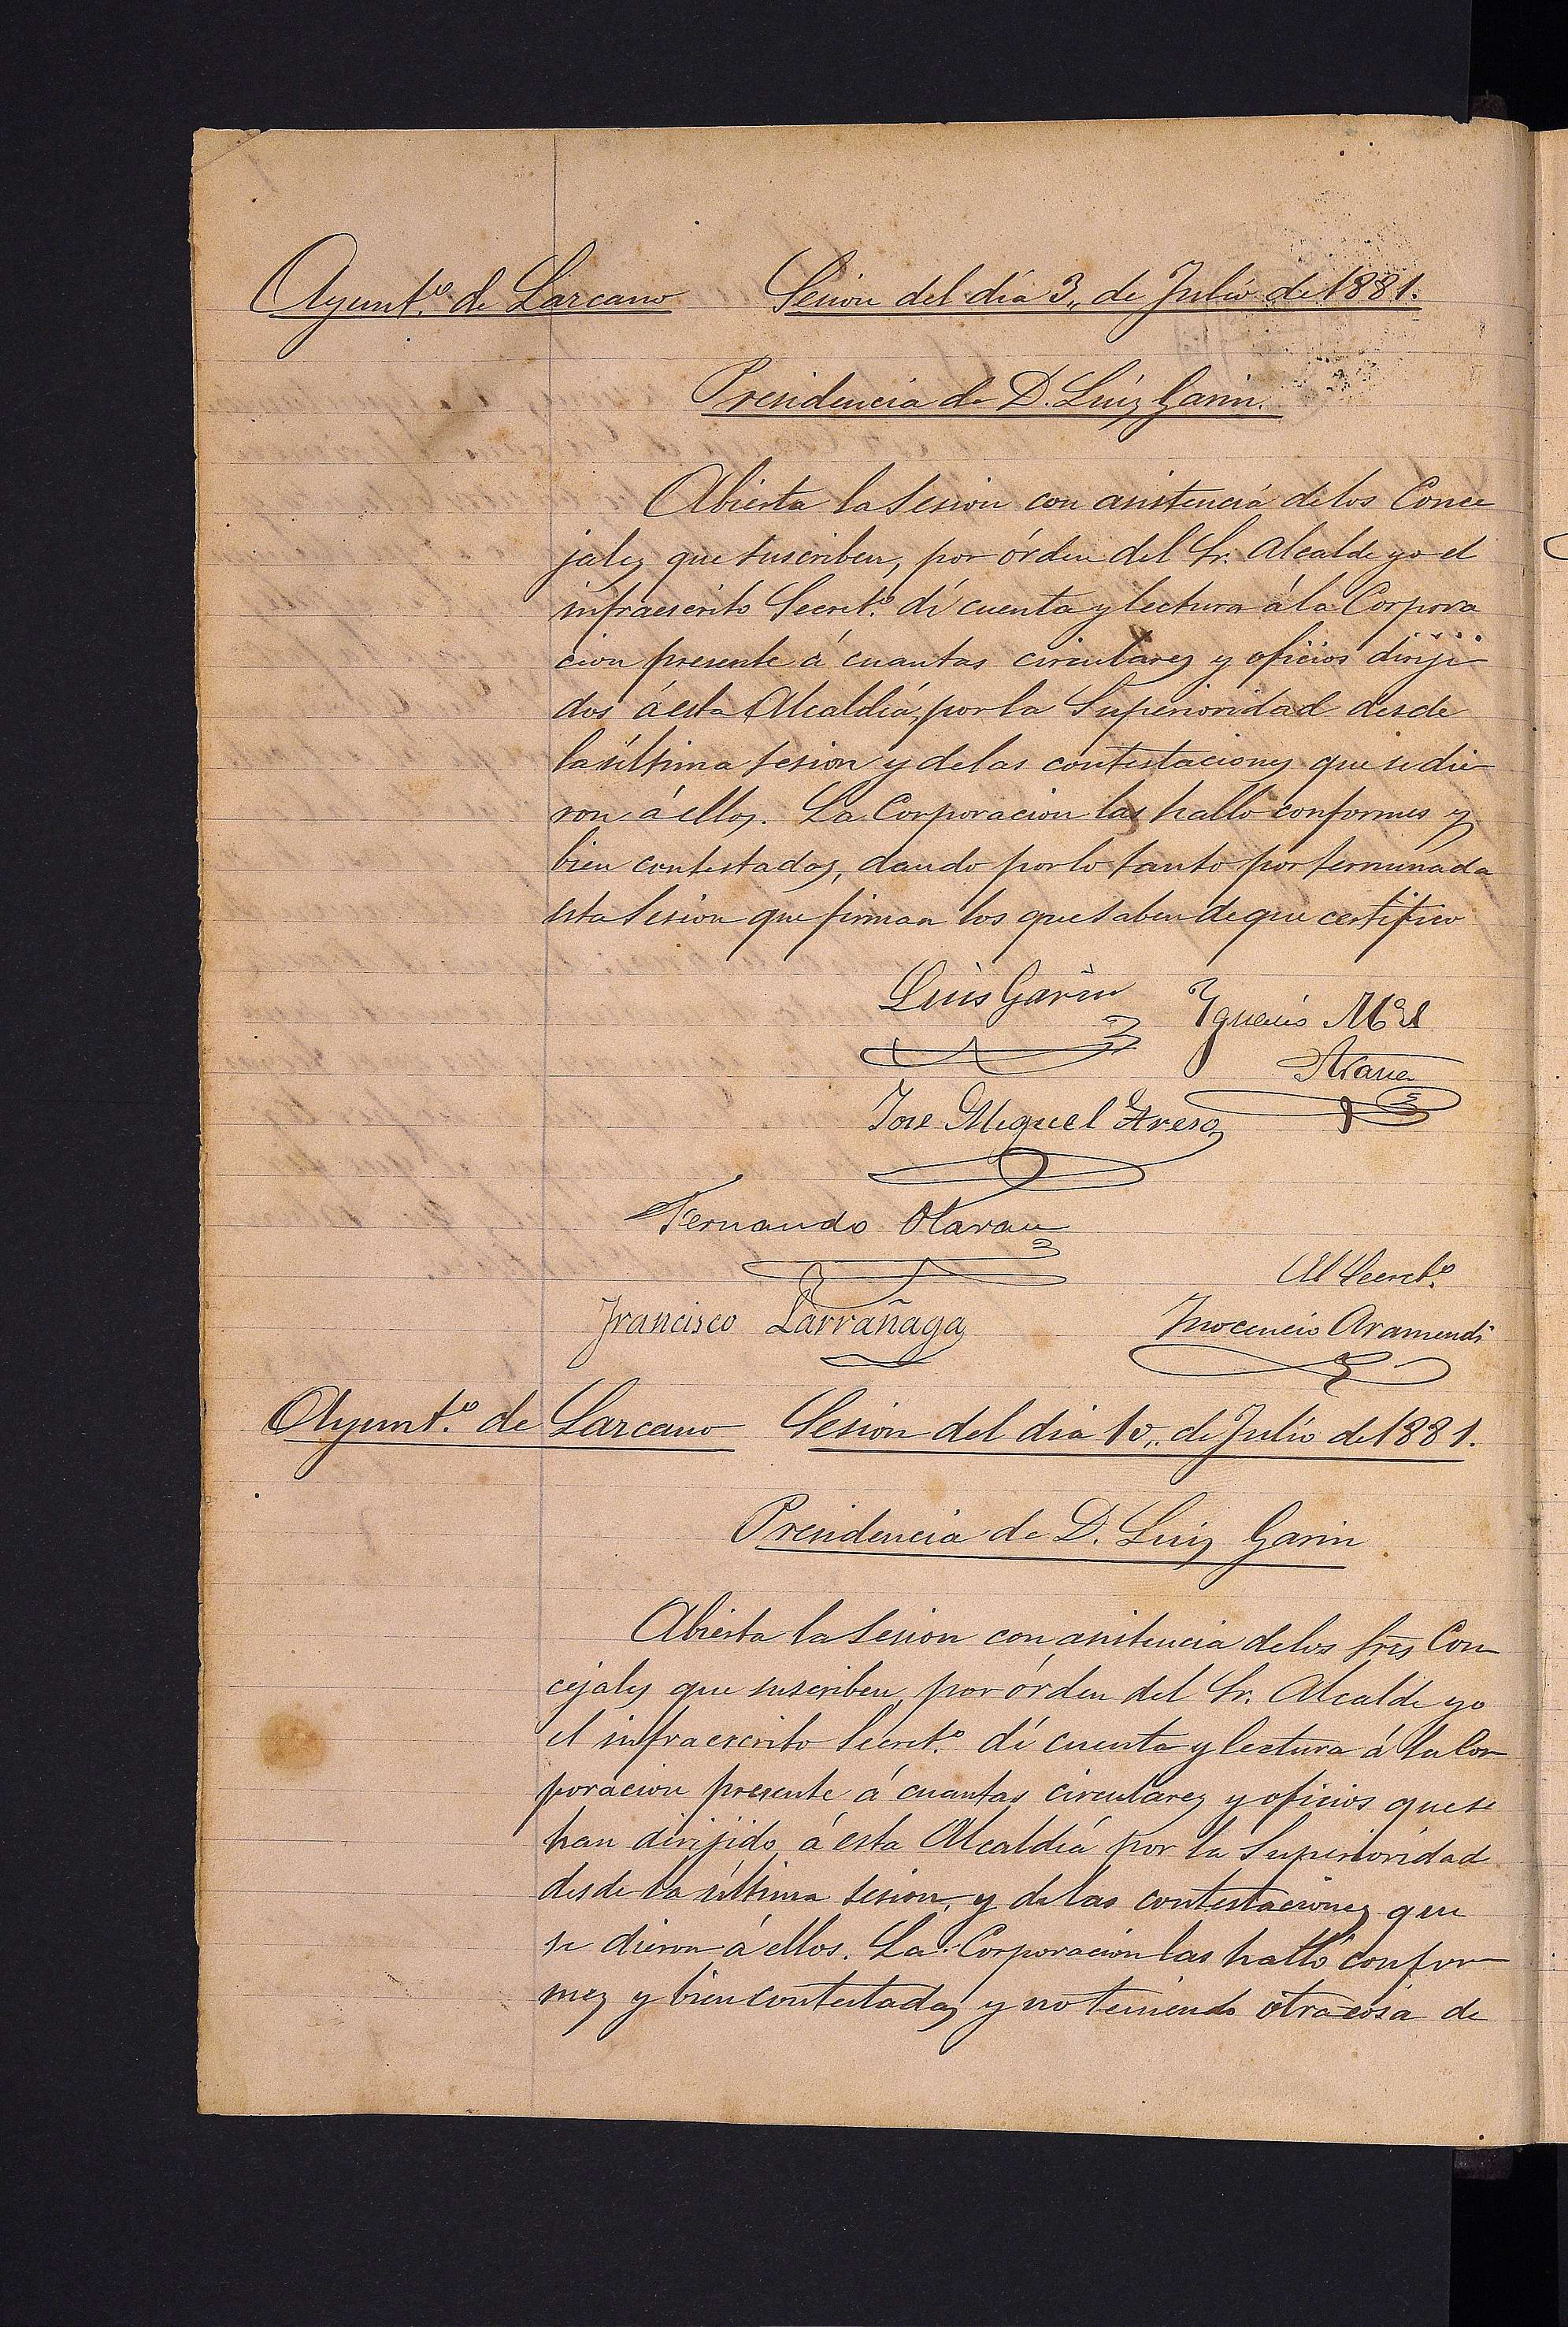 Ayunt.º de Larcano Sesion del día 3,, de Julio de 1881.
Presidencia de D. Luiz Garin.
Abierta la Sesion con asistencia de los Conce
jales que suscriben, por órden del Sr. Alcalde yo el
infraescrito Secret.º dí cuenta y lectura á la Corpora
cion presente á cuantas circulares y oficios diriji-
dos á esta Alcaldía por la Superioridad desde
la última sesion y de las contestaciones que se die-
ron á ellos. La Corporacion las halló conformes y
bien contestadas, dando por lo tanto por terminada
esta Sesion que firman los que saben de que certifico
Luis Garin Ygnacio M.ª
Jose Miguel
Fernando
El Secret.º
Francisco Larrañaga Inocencio Aramendi
Ayunt.º de Larcano Sesion del dia 10,, de Julio de 1881.
Presidencia de D. Luiz Garin
Abierta la Sesion con asitencia de los Sres Con-
cejales que suscriben, por órden del Sr. Alcalde yo
el infraescrito Secret.º dí cuenta y lectura á la Cor-
poracion presente á cuantas circulares y oficios que se
han dirijido á esta Alcaldía por la Superioridad
desde la última sesion, y de las contestaciones que
se dieron á ellos. La Corporacion las halló confor-
mes y bien contestadas y no teniendo otra cosa de